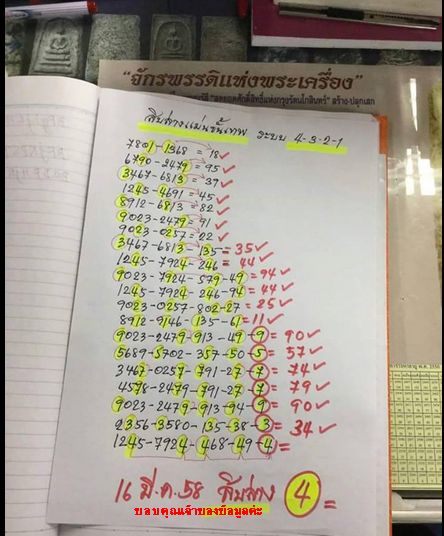 “จักรพรรดิแห่งพระเครื่อง”
สิบล่างแม่นขั้นเทพ ระบบ 4-3-2-1
7801-1368 = 18 ✓
6790-2479 = 95 ✓
3467-6813 = 39 ✓
1245-4691 = 45 ✓
8912-6813 = 82 ✓
9023-2479 = 91 ✓
9023-0257 = 22 ✓
3467-6813-135 = 35 ✓
1245-7924-246 = 44 ✓
9023-7924-579-49 = 94 ✓
1245-7924-246-94 = 44 ✓
9023-0257-802-27 = 25 ✓
8912-9146-135-61 = 11 ✓
9023-2479-913-49-9 = 90 ✓
5689-5702-357-50-5 = 57 ✓
3467-0257-791-27-7 = 74 ✓
4578-2479-791-27-7 = 79 ✓
9023-2479-913-94-9 = 90 ✓
2356-3580-135-38-3 = 34 ✓
1245-7924-468-49-4 =
16 มี.ค. 58 สิบล่าง 4 =
ขอบคุณเจ้าของข้อมูลค่ะ